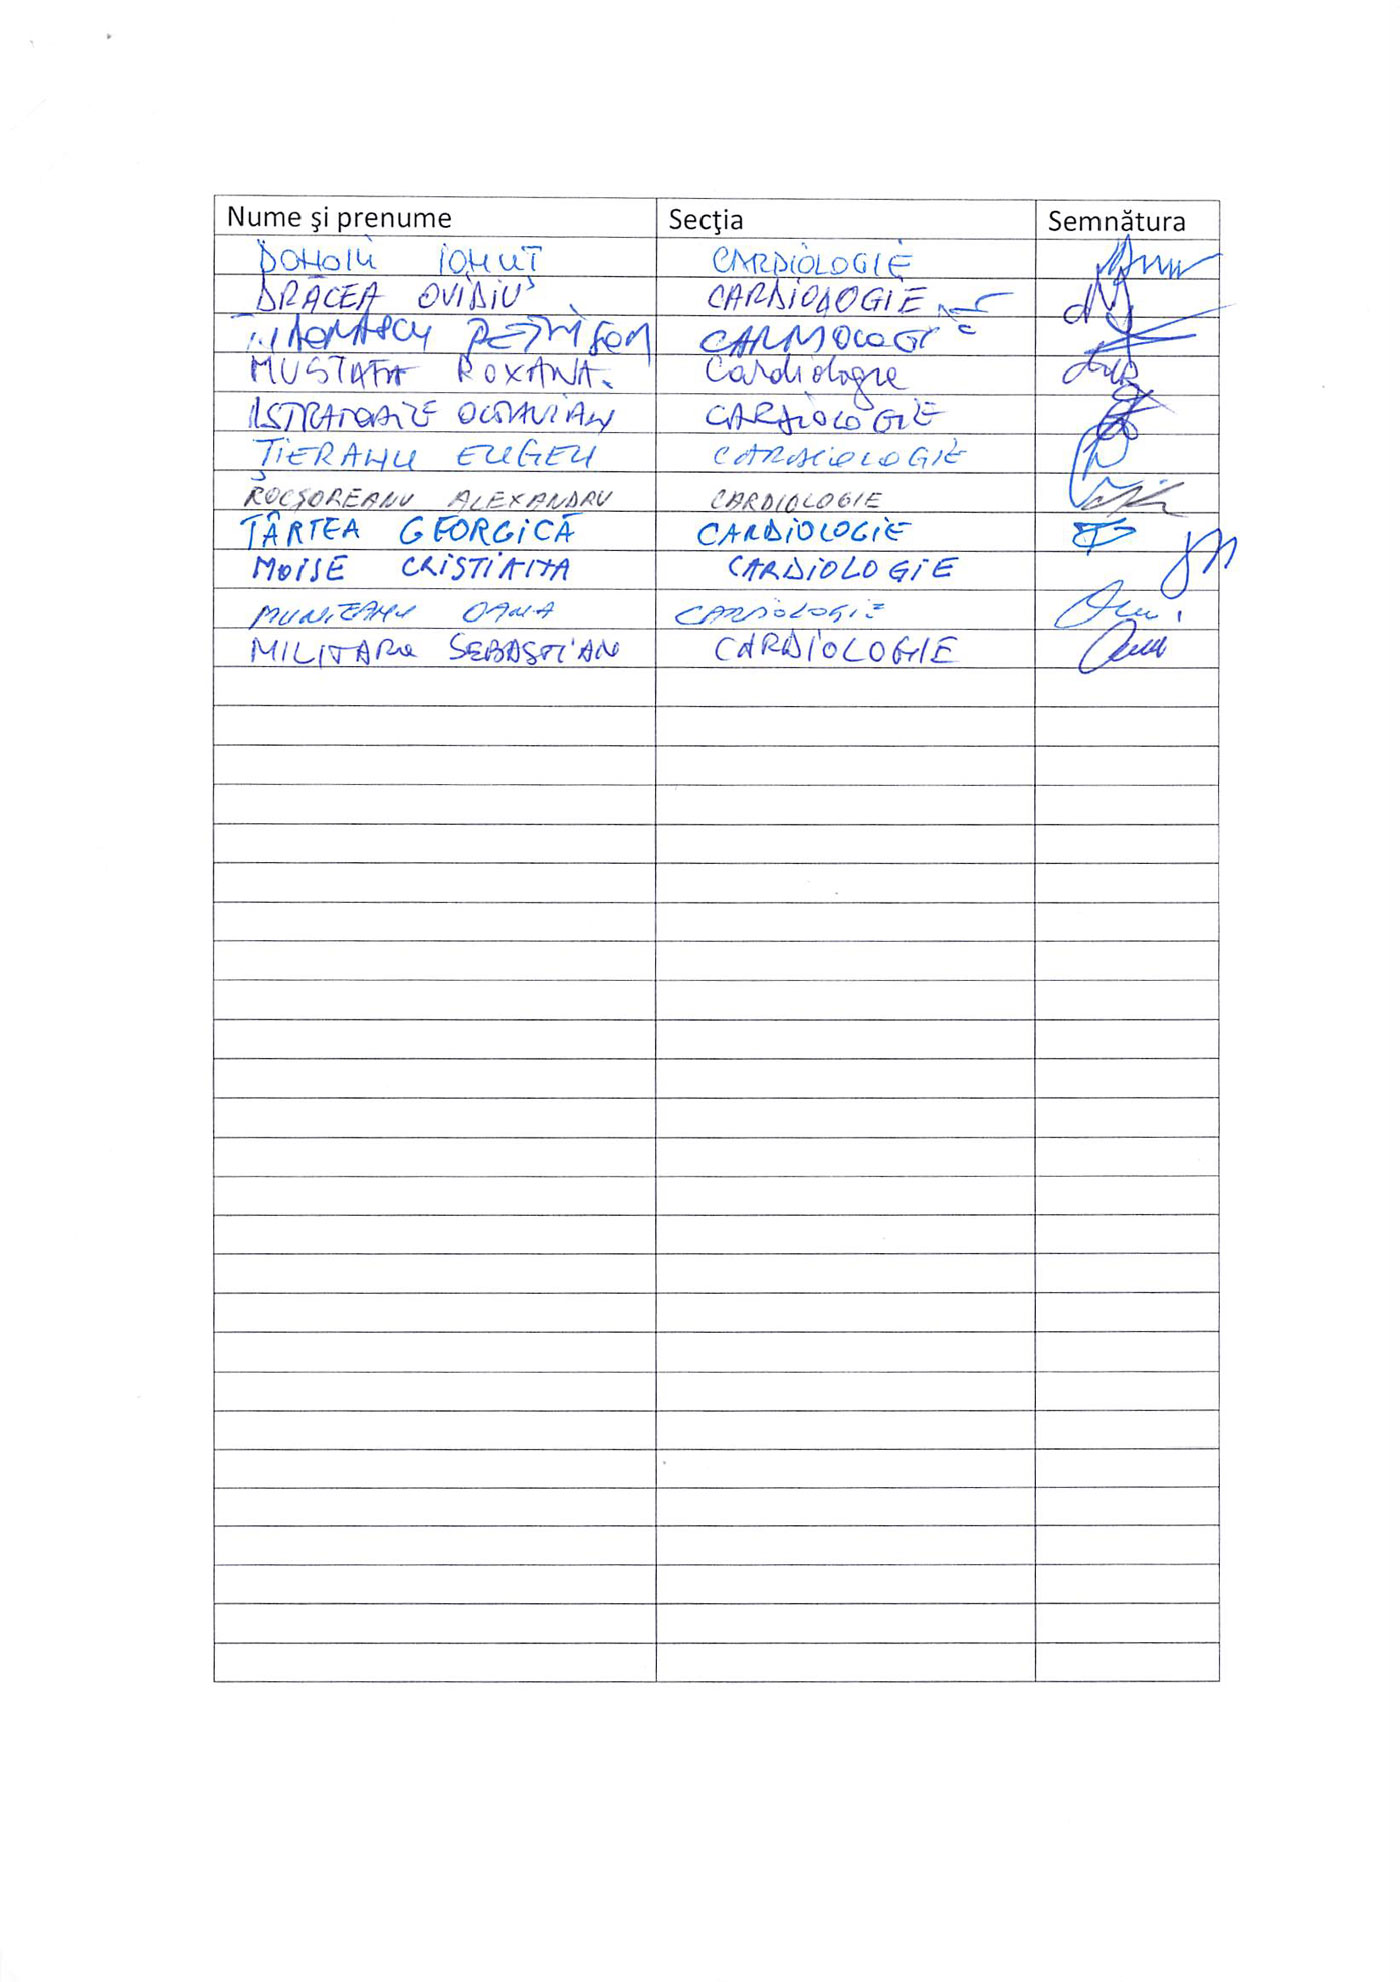 Nume şi prenume Secţia Semnătura
DONOIU IONUȚ CARDIOLOGIE
DRĂCEA OVIDIU CARDIOLOGIE
CARDIOLOGIE
MUSTAFA ROXANA. Cardiologie
ISTRATOAIE OCTAVIAN CARDIOLOGIE
ȚIERANU EUGEN CARDIOLOGIE
ROCȘOREANU ALEXANDRU CARDIOLOGIE
TÂRTEA GEORGICĂ CARDIOLOGIE
MOISE CRISTIANA CARDIOLOGIE
MUNTEANU OANA CARDIOLOGIE
MILITARU SEBASTIAN CARDIOLOGIE